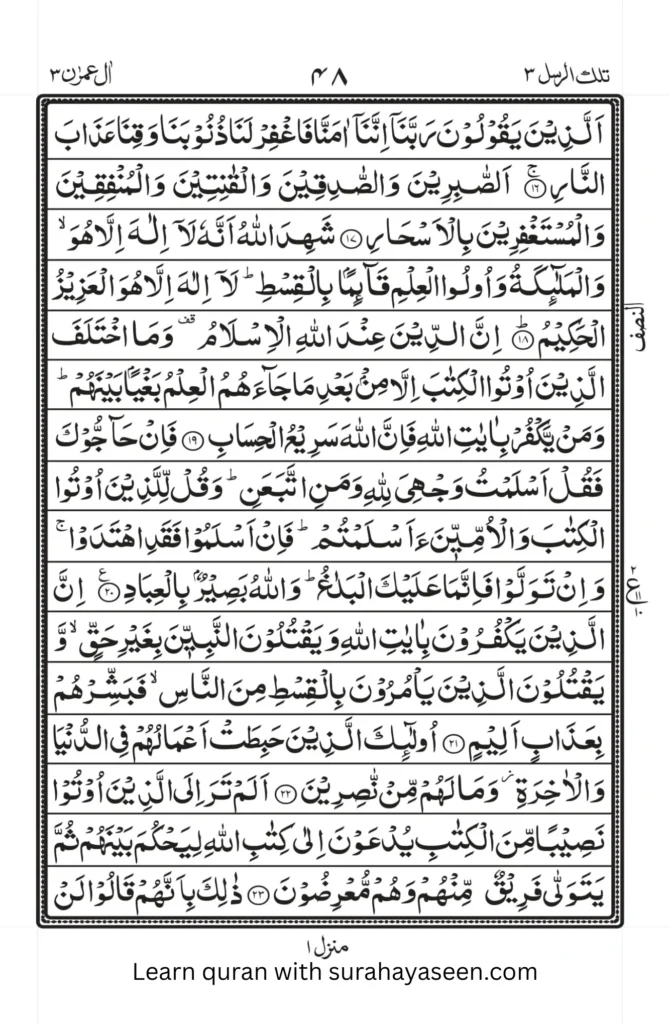 تلك الرسل ٣ ٤٨ اٰل عمرٰن ٣
اَلَّذِيْنَ يَقُوْلُوْنَ رَبَّنَاۤ اِنَّنَاۤ اٰمَنَّا فَاغْفِرْ لَنَا ذُنُوْبَنَا وَقِنَا عَذَابَ
النَّارِ ۚ‏﴿۱۶﴾ اَلصّٰبِرِيْنَ وَالصّٰدِقِيْنَ وَالْقٰنِتِيْنَ وَالْمُنْفِقِيْنَ
وَالْمُسْتَغْفِرِيْنَ بِالْاَسْحَارِ ﴿۱۷﴾ شَهِدَ اللّٰهُ اَنَّهٗ لَاۤ اِلٰهَ اِلَّا هُوَ ۙ
وَالْمَلٰٓئِكَةُ وَاُولُوا الْعِلْمِ قَآئِمًا ۢ بِالْقِسْطِ ؕ لَاۤ اِلٰهَ اِلَّا هُوَ الْعَزِيْزُ
الْحَكِيْمُ ؕ ﴿۱۸﴾ اِنَّ الدِّيْنَ عِنْدَ اللّٰهِ الْاِسْلَامُ قف وَمَا اخْتَلَفَ
النصف
الَّذِيْنَ اُوْتُوا الْكِتٰبَ اِلَّا مِنْۢ بَعْدِ مَا جَآءَهُمُ الْعِلْمُ بَغْيًا ۢ بَيْنَهُمْ ؕ
وَمَنْ يَّكْفُرْ بِاٰيٰتِ اللّٰهِ فَاِنَّ اللّٰهَ سَرِيْعُ الْحِسَابِ ﴿۱۹﴾ فَاِنْ حَآجُّوْكَ
فَقُلْ اَسْلَمْتُ وَجْهِيَ لِلّٰهِ وَمَنِ اتَّبَعَنِ ؕ وَقُلْ لِّلَّذِيْنَ اُوْتُوا
الْكِتٰبَ وَالْاُمِّيّٖنَ ءَاَسْلَمْتُمْ ؕ فَاِنْ اَسْلَمُوْا فَقَدِ اهْتَدَوْا ۚ
وَاِنْ تَوَلَّوْا فَاِنَّمَا عَلَيْكَ الْبَلٰغُ ؕ وَاللّٰهُ بَصِيْرٌۢ بِالْعِبَادِ ﴿۲۰﴾ ع اِنَّ
ع ٢ ١١ ١٠
الَّذِيْنَ يَكْفُرُوْنَ بِاٰيٰتِ اللّٰهِ وَيَقْتُلُوْنَ النَّبِيّٖنَ بِغَيْرِ حَقٍّ ۙ وَّ
يَقْتُلُوْنَ الَّذِيْنَ يَاْمُرُوْنَ بِالْقِسْطِ مِنَ النَّاسِ ۙ فَبَشِّرْهُمْ
بِعَذَابٍ اَلِيْمٍ ﴿۲۱﴾ اُولٰٓئِكَ الَّذِيْنَ حَبِطَتْ اَعْمَالُهُمْ فِى الدُّنْيَا
وَالْاٰخِرَةِ ز وَمَا لَهُمْ مِّنْ نّٰصِرِيْنَ ﴿۲۲﴾ اَلَمْ تَرَ اِلَى الَّذِيْنَ اُوْتُوْا
نَصِيْبًا مِّنَ الْكِتٰبِ يُدْعَوْنَ اِلٰى كِتٰبِ اللّٰهِ لِيَحْكُمَ بَيْنَهُمْ ثُمَّ
يَتَوَلّٰى فَرِيْقٌ مِّنْهُمْ وَهُمْ مُّعْرِضُوْنَ ﴿۲۳﴾ ذٰلِكَ بِاَنَّهُمْ قَالُوْا لَنْ
منزل ١
Learn quran with surahayaseen.com